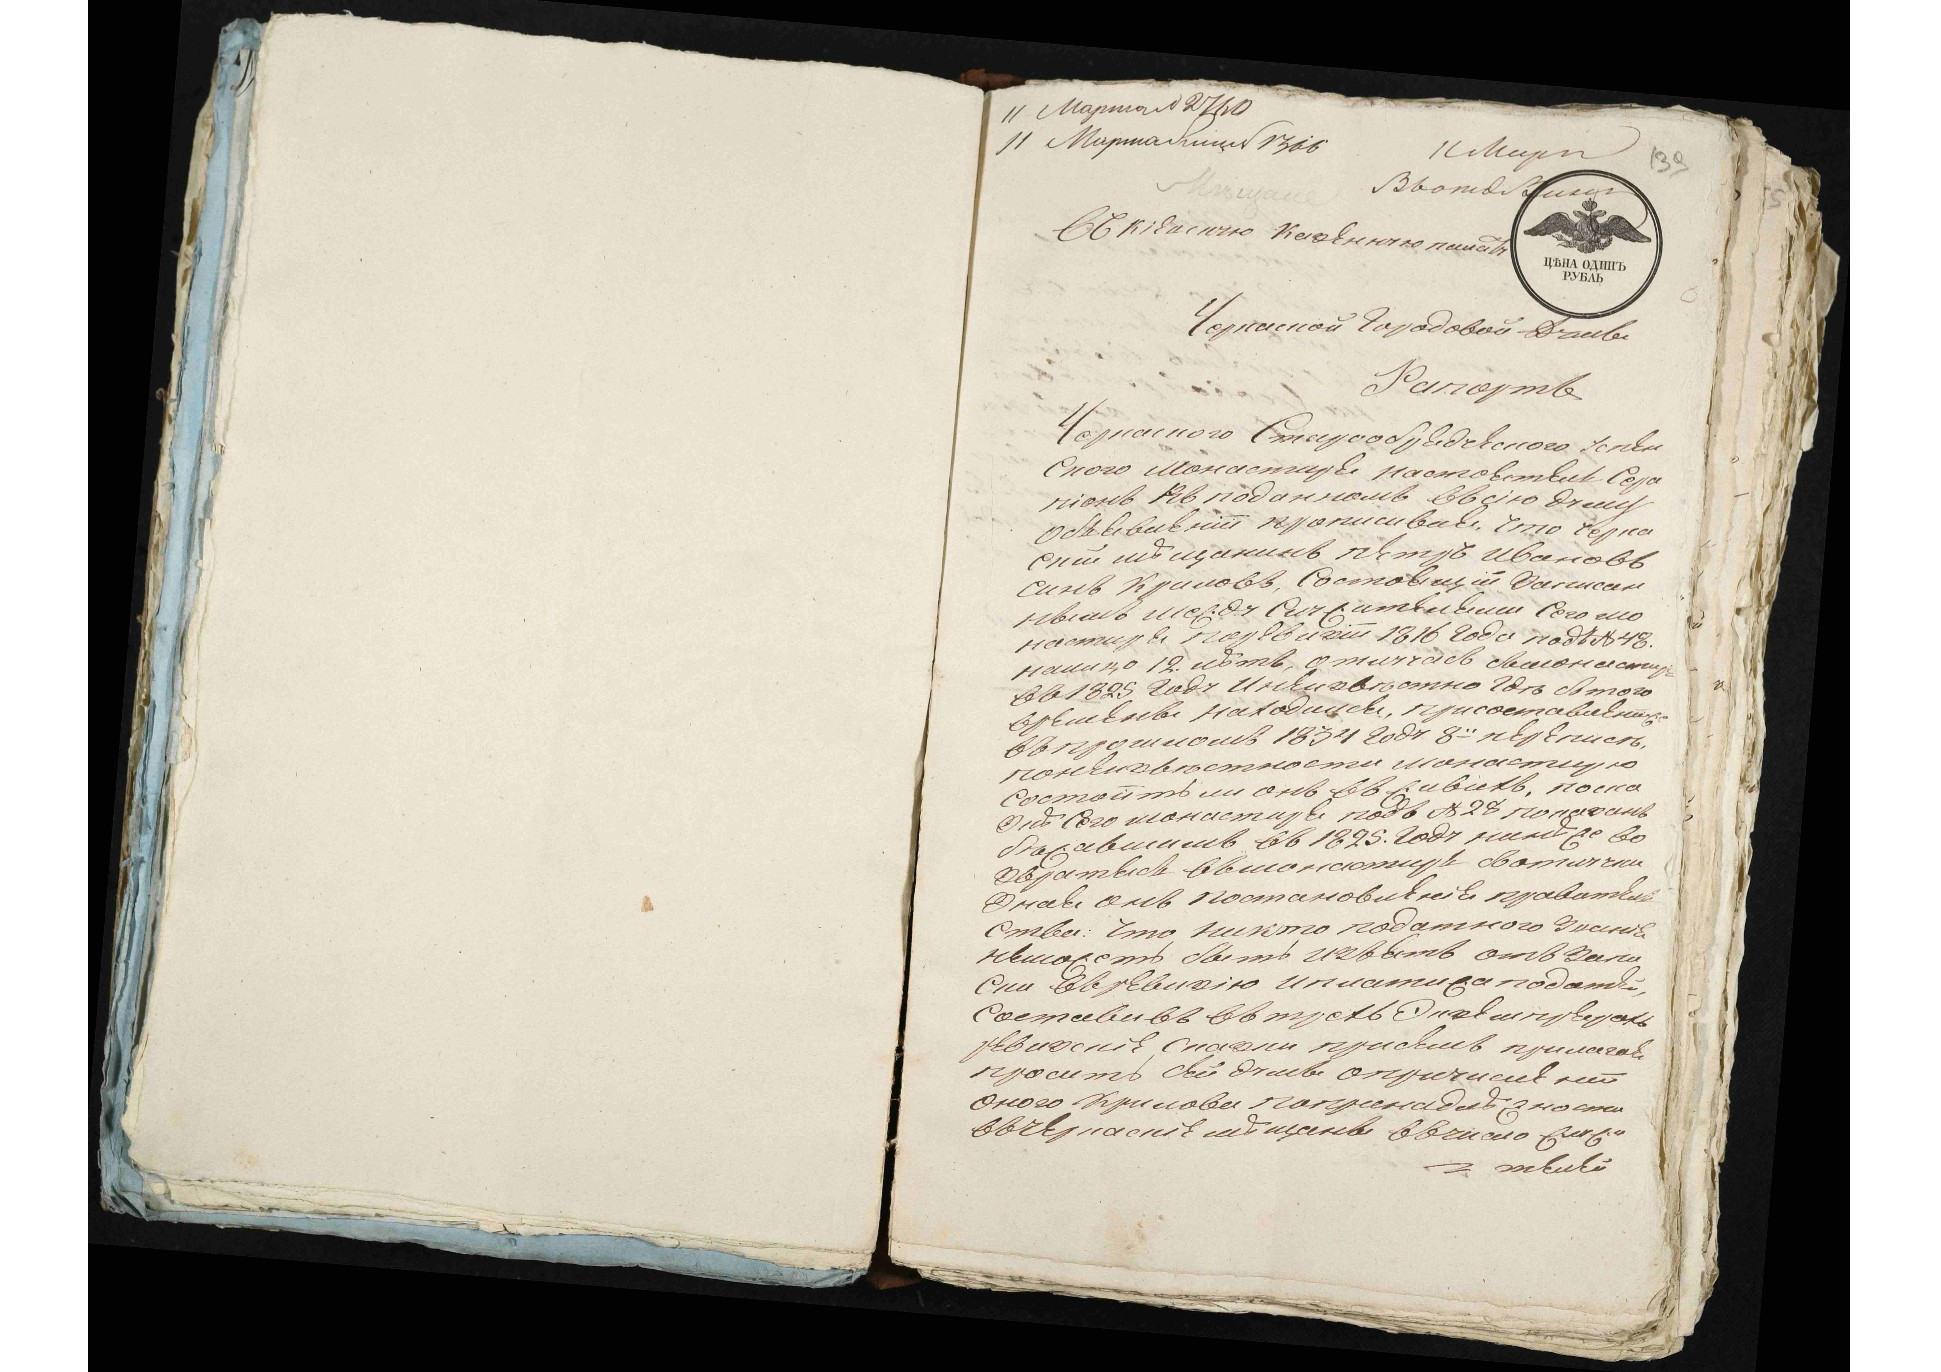 11 Марта № 2760
11 Марта № 1366
11 Мар
139
Мещане
Въ Кіевскую Казенную палату
ЦѢНА ОДИНЪ
РУБЛЬ
Черкаской Городовой Думы
Рапортъ
Черкаского Старообрядческого Успен
ского монастыря настоятель Сера
піонъ въ поданномъ въ сію думу
объявленіи прописывая, что черка
скій мѣщанинъ Петръ Ивановъ
синъ Криловъ, состоящій записан
нымъ между служителями сего мо
настыря по ревизіи 1816 года подъ № 48.
12 лѣтъ, отлучась съ монастыря
въ 1825 году и неизвѣстно гдѣ съ того
времены находился, при составленіи
въ прошломъ 1834 году 8й переписи,
по неизвѣстности монастырю
состоитъ ли онъ въ живыхъ, по ска
зкѣ сего монастыря подъ № 28 показанъ
бѣжавшимъ въ 1825. году нинѣ же во
звратясь въ монастырь съ отлучки
зная онъ постановленіе правитель
ства: что никто податного званія
неможетъ быть изъятъ отъ запи
ски въ ревизію и платежа податей,
составивъ въ трехъ экземплярахъ
ревизскіе сказки при семъ прилагая
проситъ сей думы о причисленіи
оного Крилова по принадлежности
въ черкаскіе мѣщане въ число служи
телей